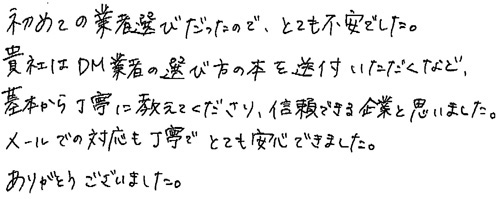 初めての業者選びだったので、とても不安でした。
貴社はDM業者の選び方の本を送付いただくなど、
基本から丁寧に教えてくださり、信頼できる企業と思いました。
メールでの対応も丁寧でとても安心できました。
ありがとうございました。